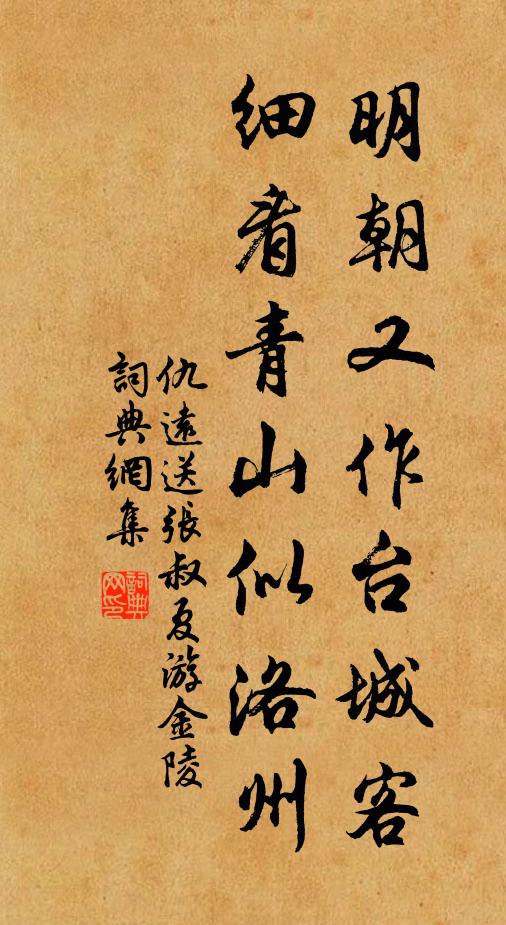 明朝又作台城客
细看青山似洛州
仇遠送張叔夏游金陵
詞典網集
詞典网印